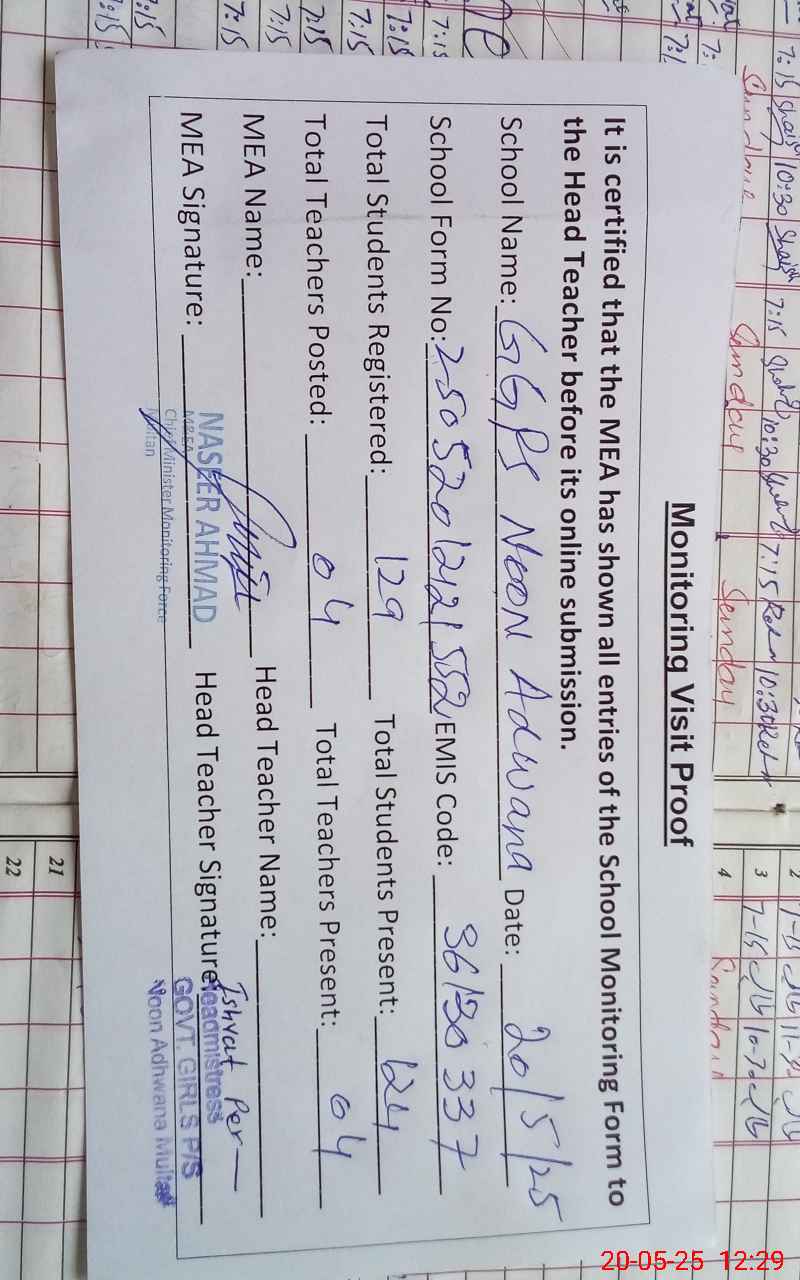 Monitoring Visit Proof
It is certified that the MEA has shown all entries of the School Monitoring Form to
the Head Teacher before its online submission.
School Name: GGPS Noon Adwana Date: 20/5/25
School Form No: 25052012121582 EMIS Code: 36130337
Total Students Registered: 129 Total Students Present: 124
Total Teachers Posted: 04 Total Teachers Present: 04
MEA Name: Head Teacher Name:
MEA Signature: Head Teacher Signature
NASEER AHMAD
MREA
Chief Minister Monitoring Force
Multan
Ishrat Per
Headmistress
GOVT. GIRLS P/S
Noon Adhwana Multan
7:15
7:15
7:15
7:15
7:15
7:15
7:15
7:15 10:30 7:15 10:30 7:15 10:30
Sunday
Sunday
Sunday
2
3
4
21
22
20-05-25 12:29